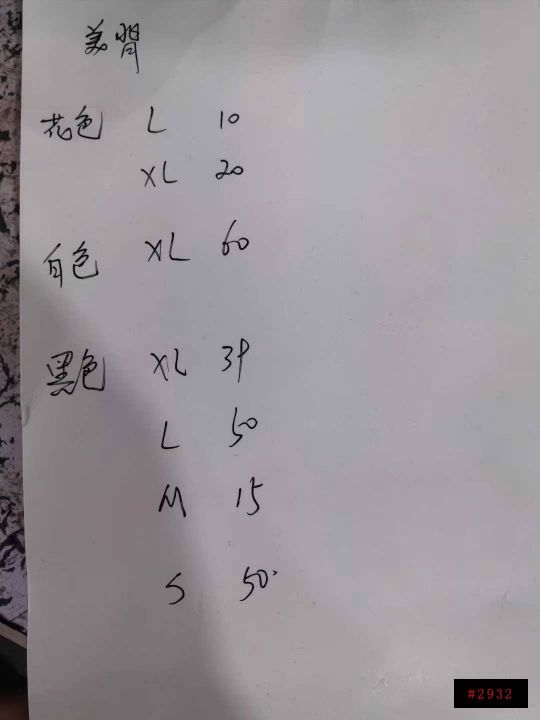 美背
花色 L 10
XL 20
白色 XL 60
黑色 XL 39
L 50
M 15
S 50
#2932